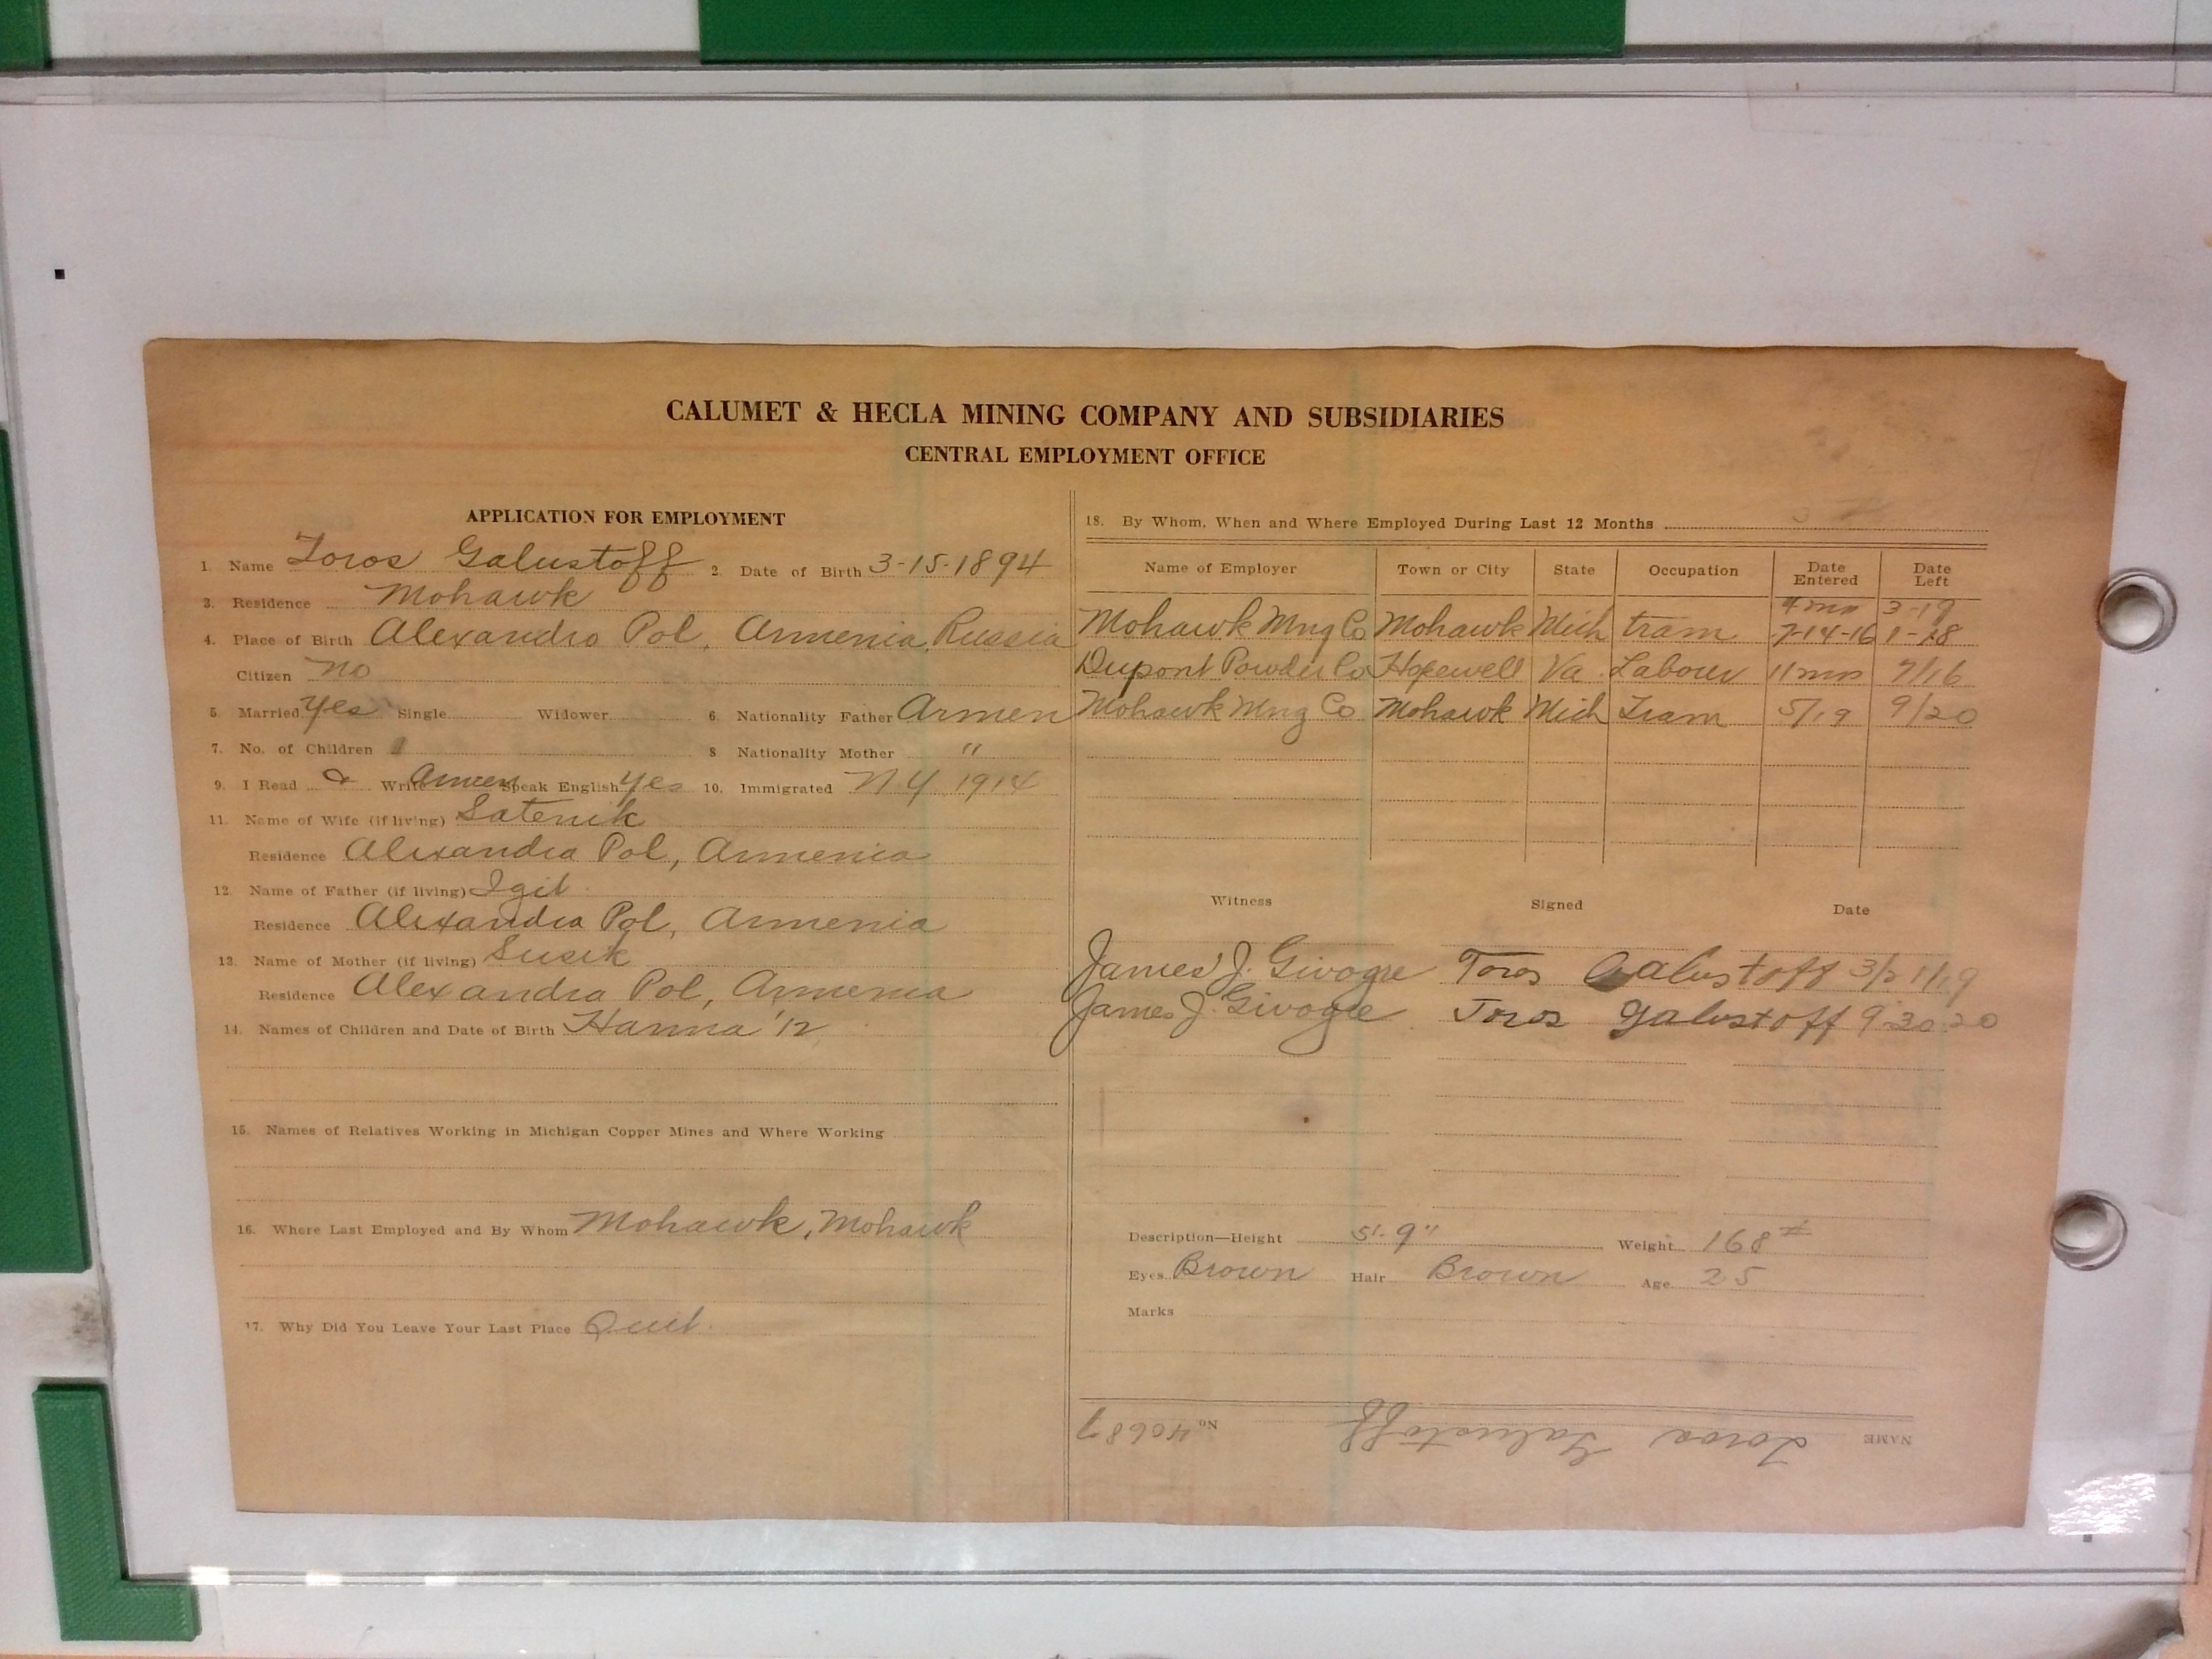 CALUMET & HECLA MINING COMPANY AND SUBSIDIARIES
CENTRAL EMPLOYMENT OFFICE
APPLICATION FOR EMPLOYMENT
1. Name Toros Galustoff 2. Date of Birth 3-15-1894
3. Residence Mohawk
4. Place of Birth Alexandra Pol, Armenia, Russia
Citizen no
5 Married yes Single Widower 6. Nationality Father Armen
7. No. of Children 1 8 Nationality Mother "
9. I Read & Write Armen Speak English yes 10. Immigrated N Y 1914
11. Name of Wife (if living) Satenik
Residence Alexandra Pol, Armenia
12. Name of Father (if living) Igit
Residence Alexandra Pol, Armenia
13. Name of Mother (if living) Susik
Residence Alexandra Pol, Armenia
14. Names of Children and Date of Birth Hanna '12
15. Names of Relatives Working in Michigan Copper Mines and Where Working
16. Where Last Employed and By Whom Mohawk, Mohawk
17. Why Did You Leave Your Last Place Quit
18. By Whom, When and Where Employed During Last 12 Months
Name of Employer Town or City State Occupation Date Entered Date Left
4 mo 3-19
Mohawk Mng Co Mohawk Mich tram 7-14-16 1-18
Dupont Powder Co Hopewell Va Labour 11 mo 7/16
Mohawk Mng Co Mohawk Mich Tram 5/19 9/20
Witness Signed Date
James J. Givogre Toros Galustoff 3/21/19
James J. Givogre Toros Galustoff 9-30-20
Description—Height 5'-9" Weight 168#
Eyes Brown Hair Brown Age 25
Marks
NAME Toros Galustoff No. 40687